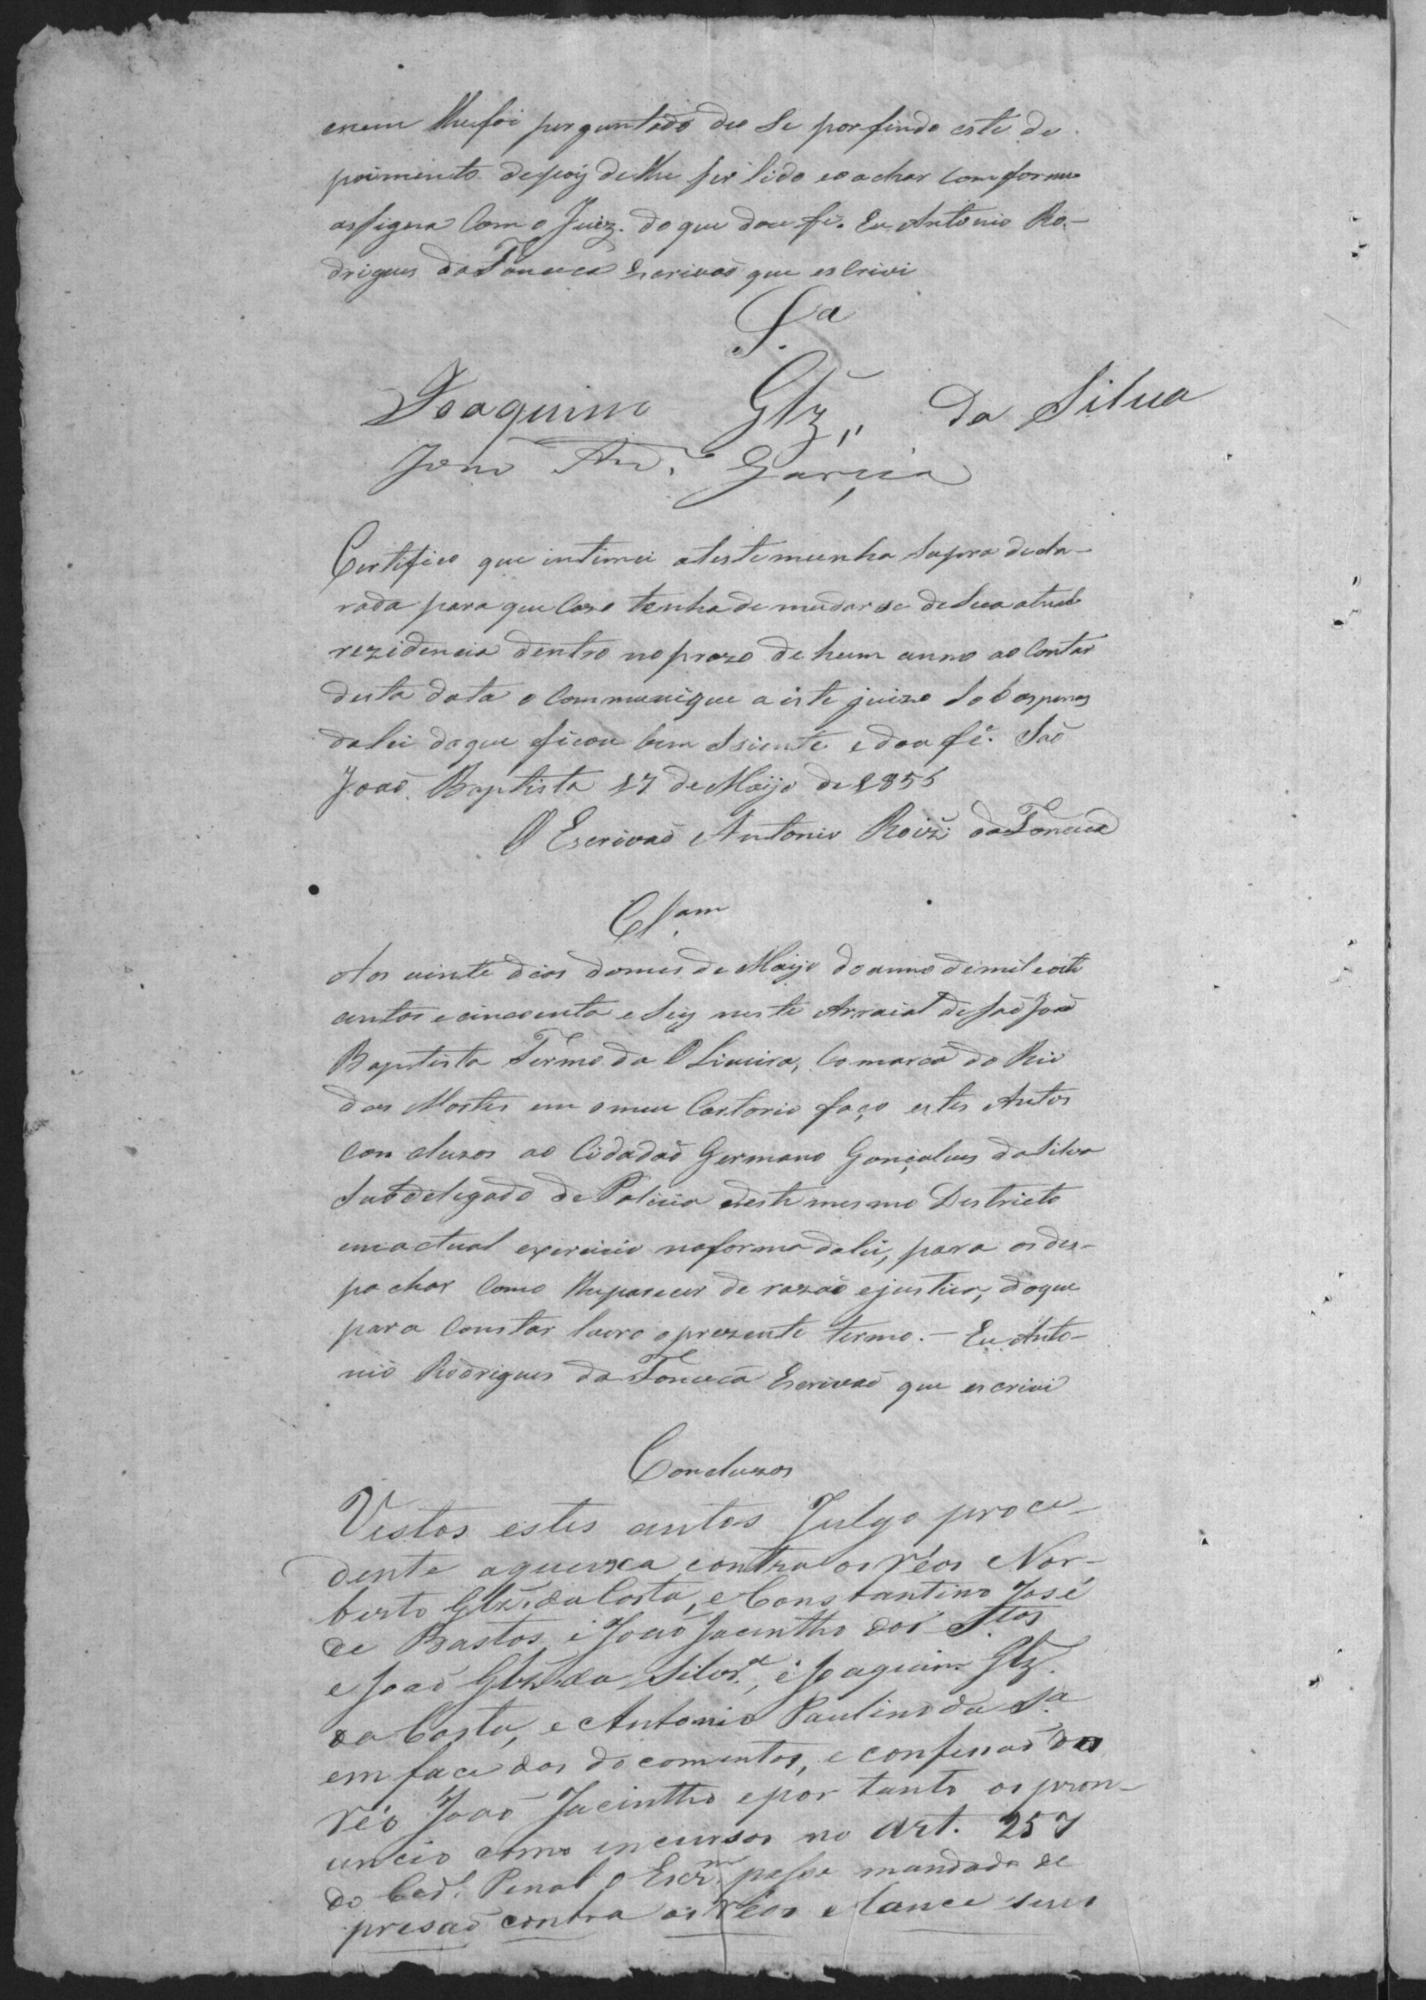 e nem lhe foi perguntado deo Se por findo este de
poimento depois de lhe ser lido e o achar comforme
assigna Com o Juiz. do que dou fé. Eu Antonio Ro-
drigues da Fonceca Escrivaõ que escrivi
S.ª
Joaquim Glz,, da Silva
Certifico que intimei a testemunha Supra decla-
rada para que Cazo tenha de mudar se de Sua atual
rezidencia dentro no prazo de hum anno ao Contar
desta data o Communique a este juizo Sob as penas
da lei do que ficou bem Sciente e dou fé. Saõ
Joaõ Baptista 17 de Maijo de 1856
O Escrivaõ Antonio Roiz da Fonceca
Clsam
Aos vinte dias do mes de Maijo do anno de mil e oito
centos e cincoenta e Seis neste Arraial de Saõ Joaõ
Baptista Termo da Oliveira, Comarca do Rio
das Mortes em o meu Cartorio faço estes Autos
Concluzos ao Cidadaõ Germano Gonçalves da Silva
Subdelegado de Policia deste mesmo Districto
em actual exercicio na forma da lei, para os des-
pachar Como lhe parecer de razaõ e justica, do que
para Constar lavro o prezente termo. - Eu Anto-
nio Rodrigues da Fonceca Escrivaõ que escrivi
Concluzos
Vistos estes autos Julgo proce-
dente a queixa contra os réos Nor-
berto Glz da Costa, e Constantino José
de Bastos, e Joaõ Jacintho dos Stos
e Joaõ Glz da Silvª, e Joaquim Glz.
da Costa, e Antonio Paulino da Sª
em face dos docomentos, e confissaõ do
réo Joaõ Jacintho e por tanto os pron-
uncio como incursos no Art. 257
do Cod. Penal o Escr.m passe mandado de
prisaõ contra os Réos e lance seus